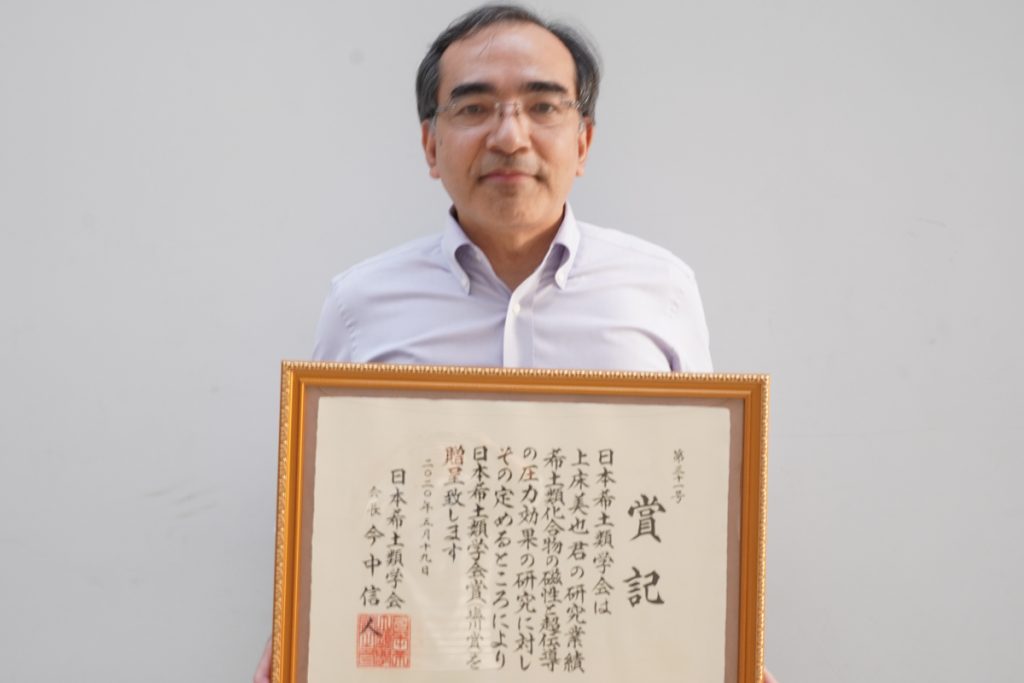 第三十一号
賞記
日本希土類学会は
上床美也君の研究業績
希土類化合物の磁性と超伝導
の圧力効果の研究に対し
その定めるところにより
日本希土類学会賞（塩川賞）を
贈呈致します
二〇二〇年五月十九日
日本希土類学会
会長 今中信人